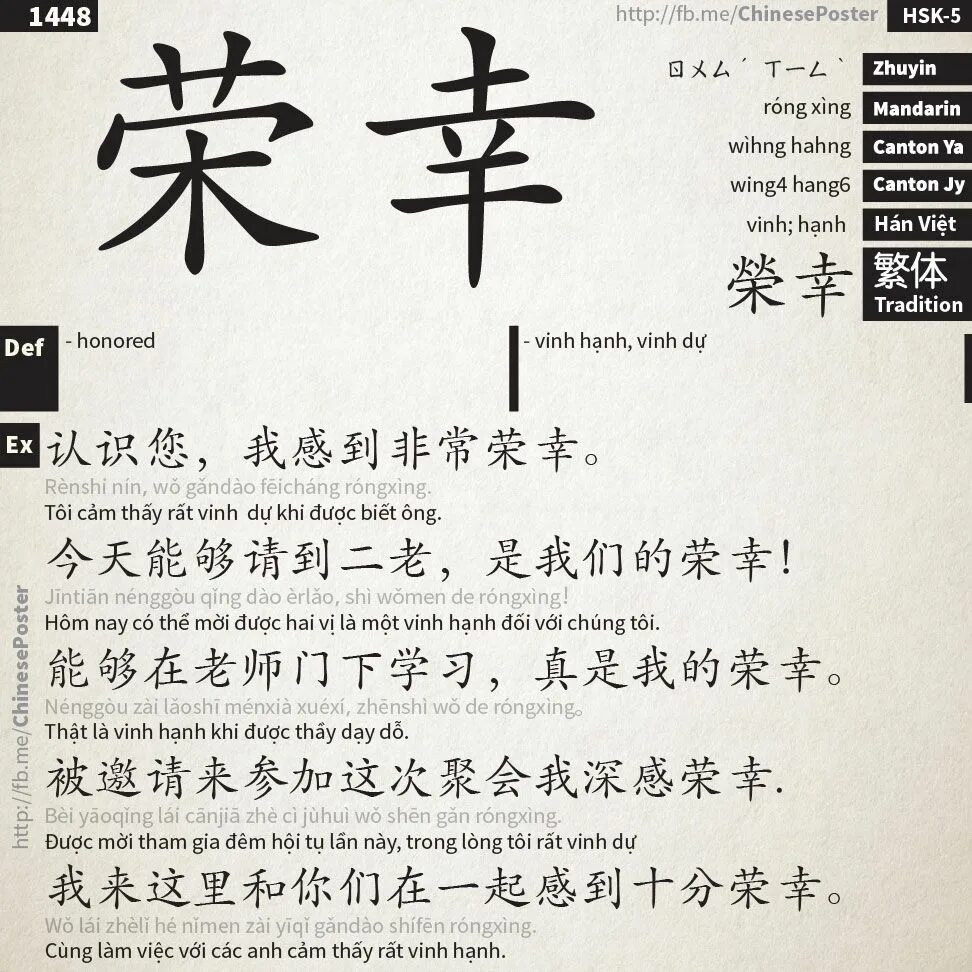 1448
http://fb.me/ChinesePoster
HSK-5
荣幸
ㄖㄨㄥˊ ㄒㄧㄥˋ Zhuyin
róng xìng Mandarin
wìhng hahng Canton Ya
wing4 hang6 Canton Jy
vinh; hạnh Hán Việt
榮幸 繁体
Tradition
Def - honored - vinh hạnh, vinh dự
Ex 认识您，我感到非常荣幸。
Rènshi nín, wǒ gǎndào fēicháng róngxìng.
Tôi cảm thấy rất vinh dự khi được biết ông.
今天能够请到二老，是我们的荣幸！
Jīntiān nénggòu qǐng dào èrlǎo, shì wǒmen de róngxìng!
Hôm nay có thể mời được hai vị là một vinh hạnh đối với chúng tôi.
能够在老师门下学习，真是我的荣幸。
Nénggòu zài lǎoshī ménxià xuéxí, zhēnshì wǒ de róngxìng。
Thật là vinh hạnh khi được thầy dạy dỗ.
被邀请来参加这次聚会我深感荣幸.
Bèi yāoqǐng lái cānjiā zhè cì jùhuì wǒ shēn gǎn róngxìng.
Được mời tham gia đêm hội tụ lần này, trong lòng tôi rất vinh dự
我来这里和你们在一起感到十分荣幸。
Wǒ lái zhèlǐ hé nǐmen zài yīqǐ gǎndào shífēn róngxìng.
Cùng làm việc với các anh cảm thấy rất vinh hạnh.
http://fb.me/ChinesePoster